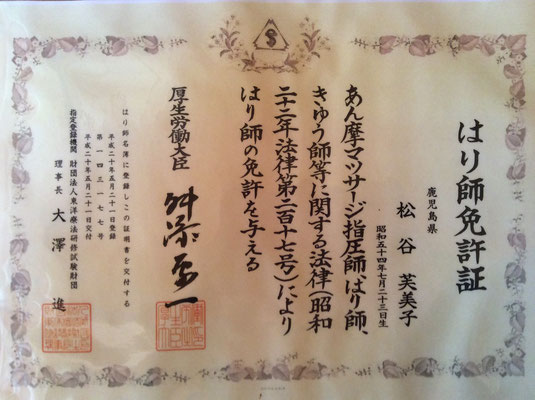 はり師免許証
鹿児島県
松谷 芙美子
昭和五十四年七月二十三日生
あん摩マツサージ指圧師、はり師、
きゆう師等に関する法律（昭和
二十二年法律第二百十七号）により
はり師の免許を与える
厚生労働大臣 舛添要一
はり師名簿に登録しこの証明書を交付する
平成二十年五月二十一日登録
第一四三一七七号
平成二十年五月二十一日交付
指定登録機関 財団法人東洋療法研修試験財団
理事長 大澤 進